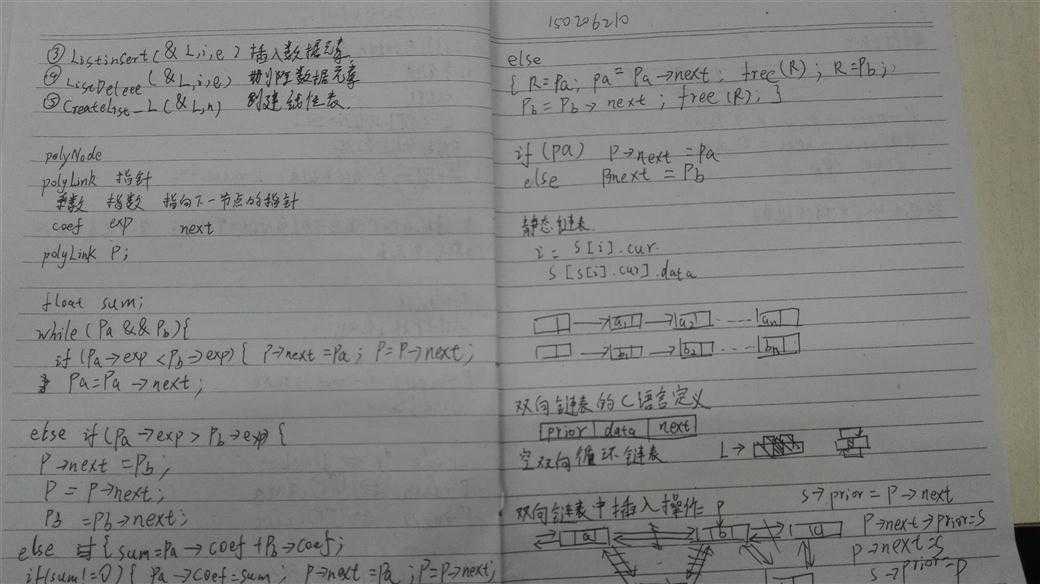 ③ Listinsert(&L,i,e) 插入数据元素
④ ListDelete(&L,i,e) 删除数据元素
⑤ CreateList_L(&L,n) 创建线性表.
polyNode
polyLink 指针
系数 指数 指向下一节点的指针
coef exp next
polyLink P;
float sum;
while(Pa && Pb){
if(Pa→exp<Pb→exp){ P→next=Pa; P=P→next;
Pa=Pa→next;
else if(Pa→exp>Pb→exp){
P→next=Pb;
P=P→next;
Pb=Pb→next;
else {sum=Pa→coef+Pb→coef;
if(sum!=0){ Pa→coef=sum; P→next=Pa;P=P→next;
150206210
else
{ R=Pa; Pa=Pa→next; free(R); R=Pb;
Pb=Pb→next; free(R); }
if(Pa) P→next=Pa
else P→next=Pb
静态链表
i=S[i].cur
S[S[i].cur].data
a1 a2 ----- an
b1 b2 ---- bn
双向链表的C语言定义
prior data next
空双向循环链表 L→
双向链表中插入操作 P
S→prior=P→next
a b
P→next→prior=S
P→next=S
S→prior=P